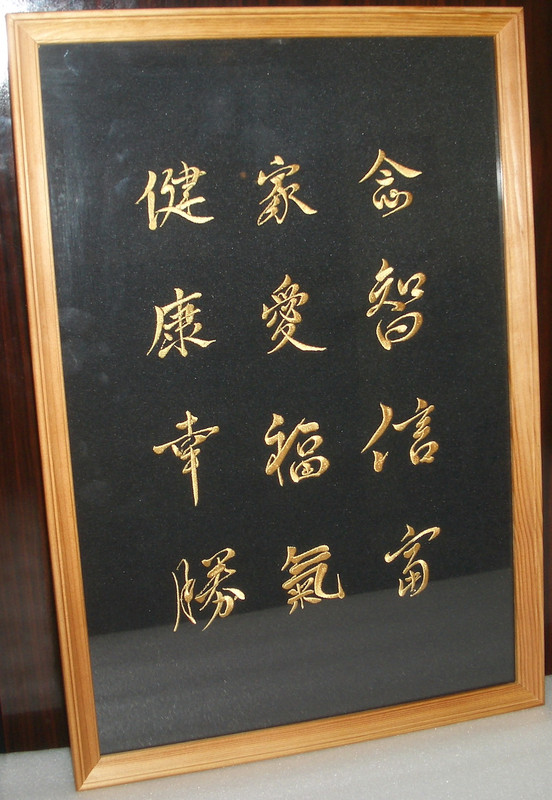 念智信富
家愛福氣
健康幸勝